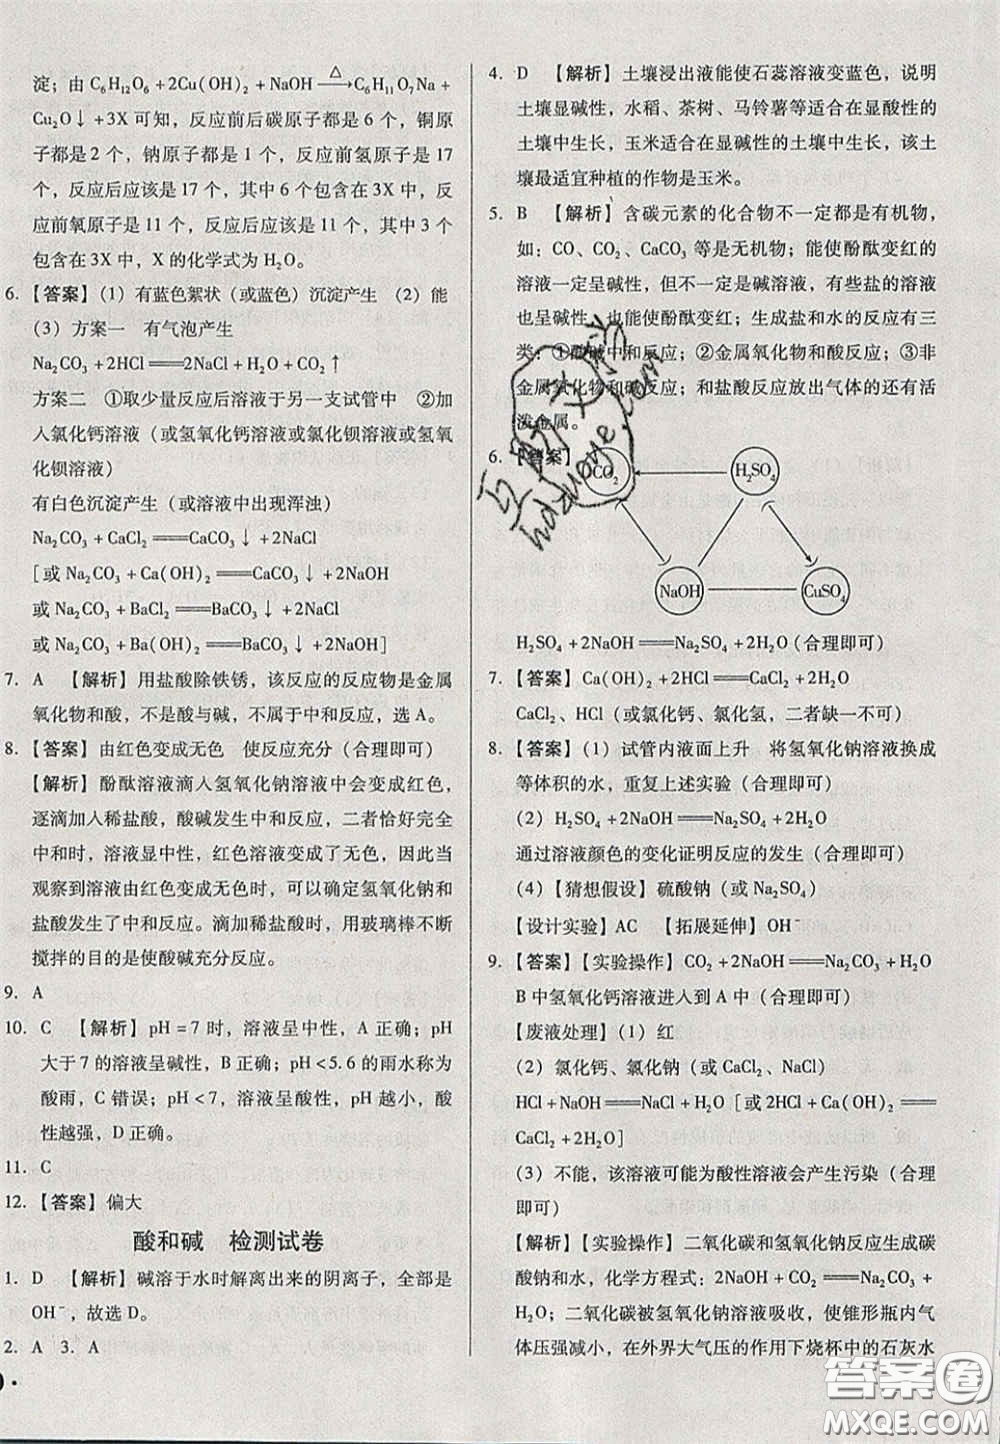 淀；由 C₆H₁₂O₆ +2Cu(OH)₂ +NaOH —△→ C₆H₁₁O₇Na +
Cu₂O↓+3X 可知，反应前后碳原子都是 6 个，铜原
子都是 2 个，钠原子都是 1 个，反应前氢原子是 17
个，反应后应该是 17 个，其中 6 个包含在 3X 中，反
应前氧原子是 11 个，反应后应该是 11 个，其中 3 个
包含在 3X 中，X 的化学式为 H₂O。
6.【答案】(1) 有蓝色絮状（或蓝色）沉淀产生 (2) 能
(3) 方案一 有气泡产生
Na₂CO₃ +2HCl══2NaCl +H₂O +CO₂↑
方案二 ①取少量反应后溶液于另一支试管中 ②加
入氯化钙溶液（或氢氧化钙溶液或氯化钡溶液或氢氧
化钡溶液）
有白色沉淀产生（或溶液中出现浑浊）
Na₂CO₃ +CaCl₂══CaCO₃↓+2NaCl
[或 Na₂CO₃ +Ca(OH)₂══CaCO₃↓+2NaOH
或 Na₂CO₃ +BaCl₂══BaCO₃↓+2NaCl
或 Na₂CO₃ +Ba(OH)₂══BaCO₃↓+2NaOH]
7. A 【解析】用盐酸除铁锈，该反应的反应物是金属
氧化物和酸，不是酸与碱，不属于中和反应，选 A。
8.【答案】由红色变成无色 使反应充分（合理即可）
【解析】酚酞溶液滴入氢氧化钠溶液中会变成红色，
逐滴加入稀盐酸，酸碱发生中和反应，二者恰好完全
中和时，溶液显中性，红色溶液变成了无色，因此当
观察到溶液由红色变成无色时，可以确定氢氧化钠和
盐酸发生了中和反应。滴加稀盐酸时，用玻璃棒不断
搅拌的目的是使酸碱充分反应。
9. A
10. C 【解析】pH =7 时，溶液呈中性，A 正确；pH
大于 7 的溶液呈碱性，B 正确；pH <5.6 的雨水称为
酸雨，C 错误；pH <7，溶液呈酸性，pH 越小，酸
性越强，D 正确。
11. C
12.【答案】偏大
酸和碱 检测试卷
1. D 【解析】碱溶于水时解离出来的阴离子，全部是
OH⁻，故选 D。
2. A 3. A
4. D 【解析】土壤浸出液能使石蕊溶液变蓝色，说明
土壤显碱性，水稻、茶树、马铃薯等适合在显酸性的
土壤中生长，玉米适合在显碱性的土壤中生长，该土
壤最适宜种植的作物是玉米。
5. B 【解析】含碳元素的化合物不一定都是有机物，
如：CO、CO₂、CaCO₃ 等是无机物；能使酚酞变红的
溶液一定呈碱性，但不一定是碱溶液，有些盐的溶液
也呈碱性，也能使酚酞变红；生成盐和水的反应有三
类：①酸碱中和反应；②金属氧化物和酸反应；③非
金属氧化物和碱反应；和盐酸反应放出气体的还有活
泼金属。
6.【答案】
CO₂ H₂SO₄
NaOH CuSO₄
H₂SO₄ +2NaOH══Na₂SO₄ +2H₂O（合理即可）
7.【答案】Ca(OH)₂ +2HCl══CaCl₂ +2H₂O
CaCl₂、HCl（或氯化钙、氯化氢，二者缺一不可）
8.【答案】(1) 试管内液面上升 将氢氧化钠溶液换成
等体积的水，重复上述实验（合理即可）
(2) H₂SO₄ +2NaOH══Na₂SO₄ +2H₂O
通过溶液颜色的变化证明反应的发生（合理即可）
(4)【猜想假设】硫酸钠（或 Na₂SO₄）
【设计实验】AC 【拓展延伸】OH⁻
9.【答案】【实验操作】CO₂ +2NaOH══Na₂CO₃ +H₂O
B 中氢氧化钙溶液进入到 A 中（合理即可）
【废液处理】(1) 红
(2) 氯化钙、氯化钠（或 CaCl₂、NaCl）
HCl +NaOH══NaCl +H₂O [或 2HCl +Ca(OH)₂══
CaCl₂ +2H₂O]
(3) 不能，该溶液可能为酸性溶液会产生污染（合理
即可）
【解析】【实验操作】二氧化碳和氢氧化钠反应生成碳
酸钠和水，化学方程式：2NaOH +CO₂══Na₂CO₃ +
H₂O；二氧化碳被氢氧化钠溶液吸收，使锥形瓶内气
体压强减小，在外界大气压的作用下烧杯中的石灰水
答案圈
MXQE.COM